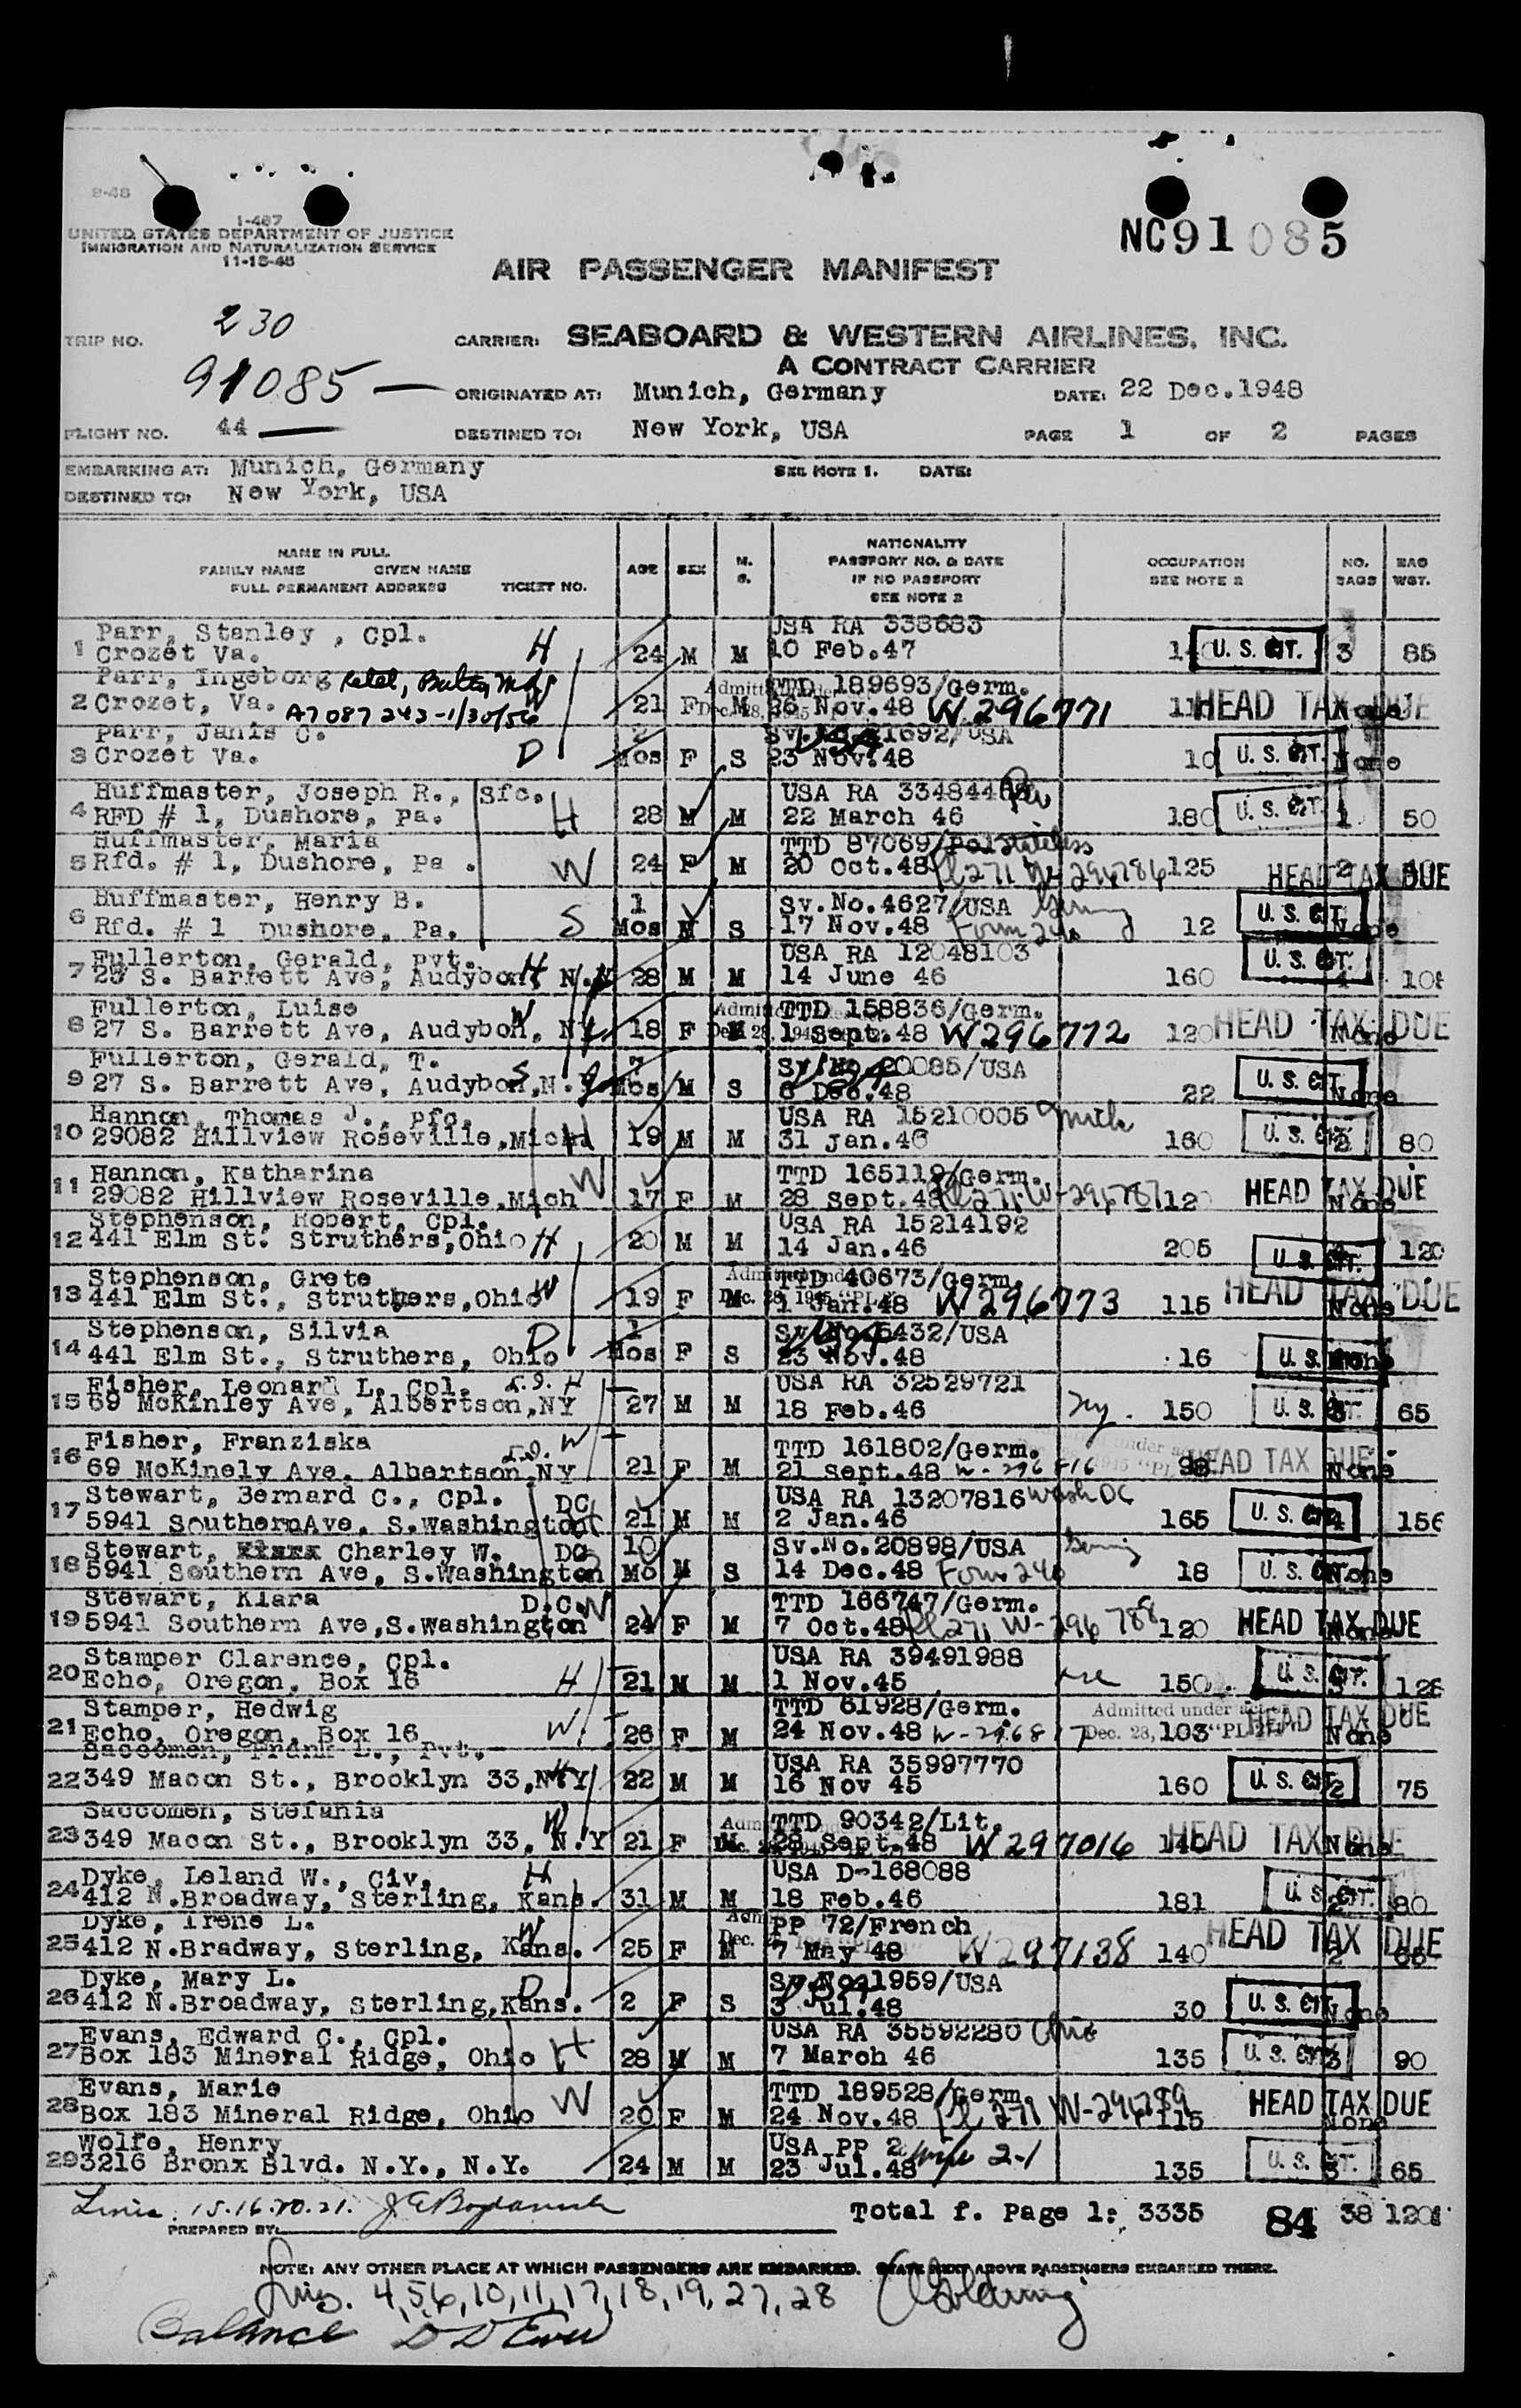 9-48
I-467
UNITED STATES DEPARTMENT OF JUSTICE
IMMIGRATION AND NATURALIZATION SERVICE
11-15-45
NC91085
AIR PASSENGER MANIFEST
TRIP NO. 230
CARRIER: SEABOARD & WESTERN AIRLINES, INC.
A CONTRACT CARRIER
91085
ORIGINATED AT: Munich, Germany DATE: 22 Dec.1948
FLIGHT NO. 44 DESTINED TO: New York, USA PAGE 1 OF 2 PAGES
EMBARKING AT: Munich, Germany SEE NOTE 1. DATE:
DESTINED TO: New York, USA
NAME IN FULL
FAMILY NAME GIVEN NAME
FULL PERMANENT ADDRESS TICKET NO.
AGE SEX M. S.
NATIONALITY
PASSPORT NO. & DATE
IF NO PASSPORT
SEE NOTE 2
OCCUPATION
SEE NOTE 2
NO. BAGS
BAG WGT.
1 Parr, Stanley , Cpl. H USA RA 338683
Crozet Va. 24 M M 10 Feb.47 U. S. CIT. 3 85
2 Parr, Ingeborg W TTD 189693/Germ.
Crozet, Va. A7 087 243-1/30/56 21 F M 26 Nov.48 W 296771 HEAD TAX DUE None
3 Parr, Janis C. D 1692/USA
Crozet Va. Mos F S 23 Nov.48 10 U. S. CIT. None
4 Huffmaster, Joseph R., Sfc. USA RA 33484468 Pa
RFD # 1, Dushore, Pa. H 28 M M 22 March 46 180 U. S. CIT. 1 50
5 Huffmaster, Maria TTD 87069/Pol Stateless
Rfd. # 1, Dushore, Pa . W 24 F M 20 Oct.48 Pl 271 W-296786 125 HEAD TAX DUE 2 40
6 Huffmaster, Henry B. 1 Sv.No.4627/USA
Rfd. # 1 Dushore, Pa. S Mos M S 17 Nov.48 Form 240 12 U. S. CIT. None
7 Fullerton, Gerald, Pvt. H USA RA 12048103
S. Barrett Ave, Audybon, N.J 28 M M 14 June 46 160 U. S. CIT.
8 Fullerton, Luise W TTD 158836/Germ.
27 S. Barrett Ave, Audybon, NJ 18 F M 1 Sept.48 W296772 120 HEAD TAX DUE None
9 Fullerton, Gerald, T. S 7 20085/USA
27 S. Barrett Ave, Audybon, N.J Mos M S 8 Dec.48 22 U. S. CIT. None
10 Hannon, Thomas J., Pfc. USA RA 15210005 Mich
29082 Hillview Roseville,Mich H 19 M M 31 Jan.46 160 U. S. CIT. 2 80
11 Hannon, Katharina W TTD 165119/Germ.
29082 Hillview Roseville,Mich 17 F M 28 Sept.48 Pl 271 W-296787 120 HEAD TAX DUE None
12 Stephenson, Robert, Cpl. USA RA 15214192
441 Elm St. Struthers,Ohio H 20 M M 14 Jan.46 205 U. S. CIT. 120
13 Stephenson, Grete W TTD 40673/Germ.
441 Elm St., Struthers,Ohio 19 F M 1 Jan.48 W296773 115 HEAD TAX DUE None
14 Stephenson, Silvia D 1 5432/USA
441 Elm St., Struthers, Ohio Mos F S 23 Nov.48 16 U. S. CIT. None
15 Fisher, Leonard L. Cpl. H USA RA 32529721
69 McKinley Ave, Albertson,NY 27 M M 18 Feb.46 Ny. 150 U. S. CIT. 65
16 Fisher, Franziska W TTD 161802/Germ.
69 McKinely Ave, Albertson,NY 21 F M 21 Sept.48 W-296816 98 HEAD TAX DUE None
17 Stewart, Bernard C., Cpl. DC USA RA 13207816 Wash DC
5941 SouthernAve, S.Washington 21 M M 2 Jan.46 165 U. S. CIT. 156
18 Stewart, Charley W. DC 10 Sv.No.20898/USA
5941 Southern Ave, S.Washington Mo M S 14 Dec.48 Form 240 18 U. S. CIT. None
19 Stewart, Klara D.C. W TTD 166747/Germ.
5941 Southern Ave,S.Washington 24 F M 7 Oct.48 Pl 271 W-296788 120 HEAD TAX DUE None
20 Stamper Clarence, Cpl. USA RA 39491988
Echo, Oregon, Box 16 H 21 M M 1 Nov.45 150 U. S. CIT. 128
21 Stamper, Hedwig TTD 61928/Germ.
Echo, Oregon, Box 16 W 26 F M 24 Nov.48 W-296817 103 HEAD TAX DUE None
22 Saccomen, Frank L., Pvt. USA RA 35997770
349 Macon St., Brooklyn 33,N.Y H 22 M M 16 Nov 45 160 U. S. CIT. 2 75
23 Saccomen, Stefania W TTD 90342/Lit.
349 Macon St., Brooklyn 33, N.Y 21 F M 28 Sept.48 W297016 140 HEAD TAX DUE None
24 Dyke, Leland W., Civ. H USA D-168088
412 N.Broadway, Sterling, Kans. 31 M M 18 Feb.46 181 U. S. CIT. 2 80
25 Dyke, Irene L. W PP 72/French
412 N.Bradway, Sterling, Kans. 25 F M 7 May 48 W297138 140 HEAD TAX DUE 2 65
26 Dyke, Mary L. D Sv.No.1959/USA
412 N.Broadway, Sterling,Kans. 2 F S 3 Jul.48 30 U. S. CIT. None
27 Evans, Edward C., Cpl. H USA RA 35592280 Ohio
Box 183 Mineral Ridge, Ohio 28 M M 7 March 46 135 U. S. CIT. 3 90
28 Evans, Marie W TTD 189528/Germ
Box 183 Mineral Ridge, Ohio 20 F M 24 Nov.48 Pl 271 W-296789 115 HEAD TAX DUE None
29 Wolfe, Henry USA PP 2
3216 Bronx Blvd. N.Y., N.Y. 24 M M 23 Jul.48 2-1 135 U. S. CIT. 3 65
Lines 15.16.20.21. Total f. Page 1: 3335 84 38
PREPARED BY:
NOTE: ANY OTHER PLACE AT WHICH PASSENGERS ARE EMBARKED. STATE NEXT ABOVE PASSENGERS EMBARKED THERE.
4,5,6,10,11,17,18,19,27,28
Balance